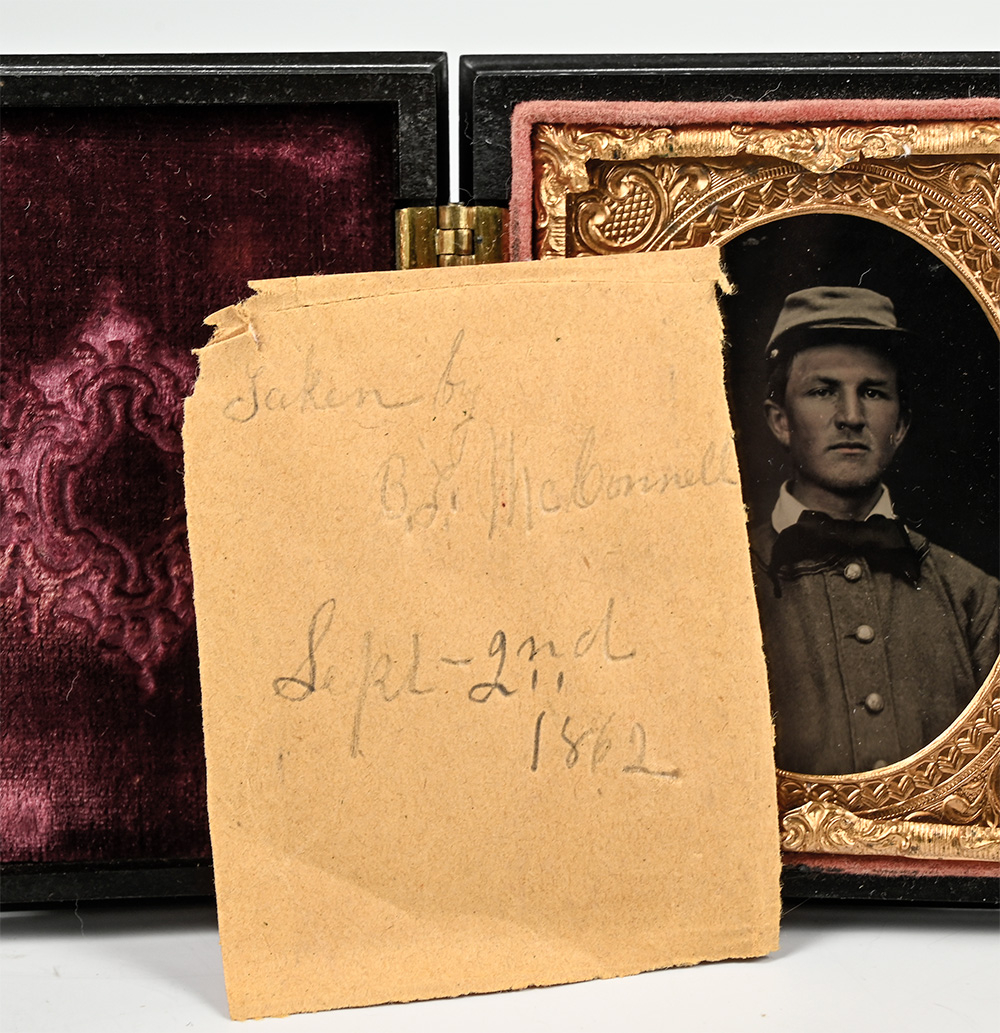 Taken by
B. F. McConnell
Sept - 2nd
1862